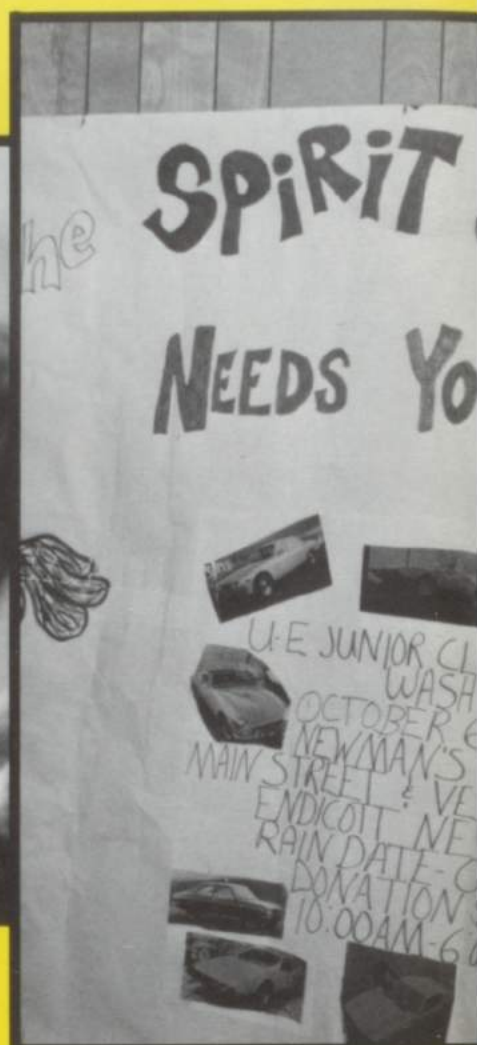 he SPiRiT
NEEDS Yo
U-E JUNIOR CL
WASH
OCTOBER 6
NEWMAN'S
MAIN STREET & VE
ENDICOTT NE
RAIN DATE - O
DONATION $
10:00AM-6:0